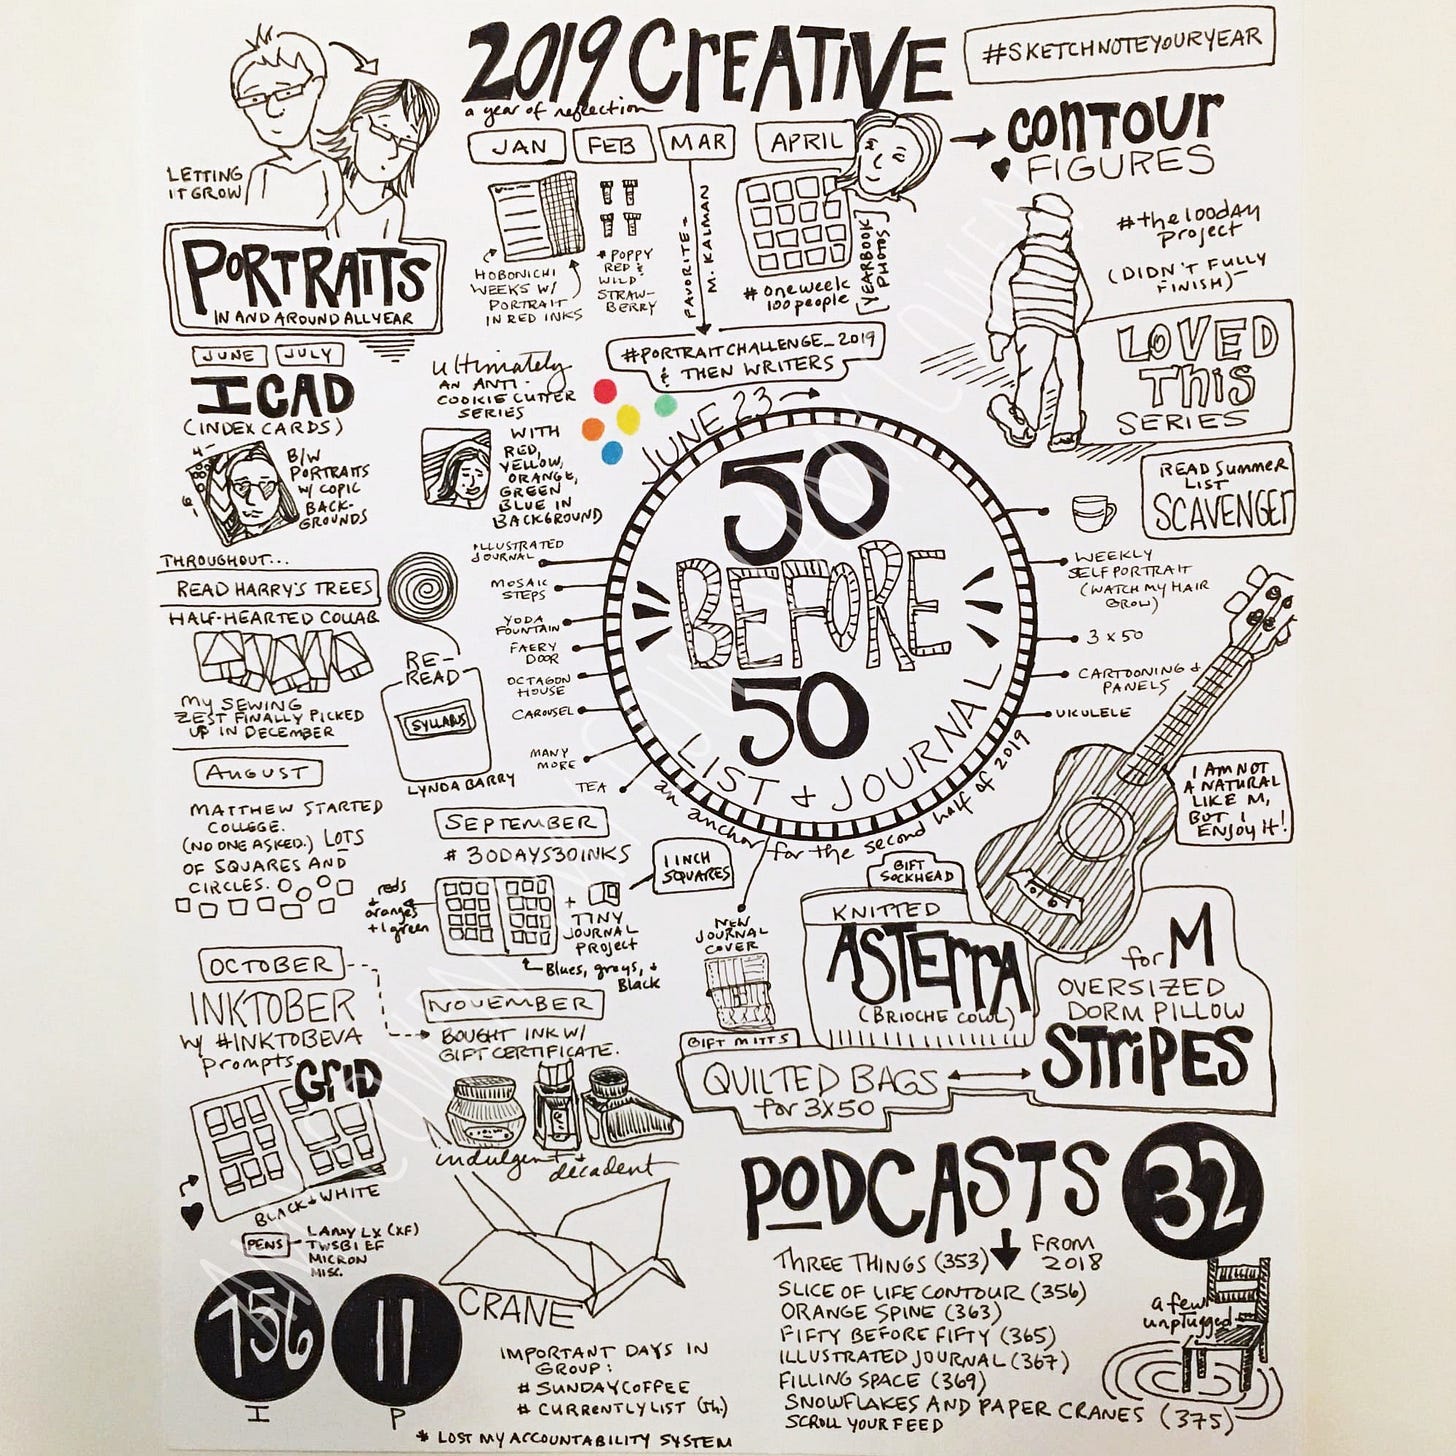 2019 CREATIVE
a year of reflection
#SKETCHNOTEYOURYEAR
LETTING
IT GROW
PORTRAITS
IN AND AROUND ALL YEAR
JAN
FEB
MAR
APRIL
HOBONICHI
WEEKS W/
PORTRAIT
IN RED INKS
*POPPY
RED &
WILD
STRAW-
BERRY
FAVORITE -
M. KALMAN
#oneweek
100people
[YEARBOOK
PHOTOS]
CONTOUR
FIGURES
#the100day
project
(DIDN'T FULLY
FINISH)
LOVED
THIS
SERIES
#PORTRAITCHALLENGE_2019
& THEN WRITERS
JUNE
JULY
ICAD
(INDEX CARDS)
B/W
PORTRAITS
W/ COPIC
BACK-
GROUNDS
ULTIMATELY
AN ANTI-
COOKIE CUTTER
SERIES
WITH
RED,
YELLOW,
ORANGE,
GREEN
BLUE IN
BACKGROUND
JUNE 23
50
BEFORE
50
LIST + JOURNAL
an anchor for the second half of 2019
ILLUSTRATED
JOURNAL
MOSAIC
STEPS
YODA
FOUNTAIN
FAERY
DOOR
OCTAGON
HOUSE
CAROUSEL
MANY
MORE
TEA
READ SUMMER
LIST
SCAVENGER
WEEKLY
SELF PORTRAIT
(WATCH MY HAIR
GROW)
3 x 50
CARTOONING +
PANELS
UKULELE
I AM NOT
A NATURAL
LIKE M,
BUT I
ENJOY IT!
THROUGHOUT...
READ HARRY'S TREES
HALF-HEARTED COLLAB
MY SEWING
ZEST FINALLY PICKED
UP IN DECEMBER
RE-
READ
SYLLABUS
LYNDA BARRY
AUGUST
MATTHEW STARTED
COLLEGE.
(NO ONE ASKED.) LOTS
OF SQUARES AND
CIRCLES.
SEPTEMBER
# 30DAYS30INKS
1 INCH
SQUARES
reds
+
oranges
+1 green
+
TINY
JOURNAL
PROJECT
Blues, grays, +
Black
NEW
JOURNAL
COVER
GIFT
SOCKHEAD
KNITTED
ASTERRA
(BRIOCHE COWL)
for M
OVERSIZED
DORM PILLOW
STRIPES
GIFT MITTS
QUILTED BAGS
for 3X50
OCTOBER
INKTOBER
W/ #INKTOBEVA
prompts
GRID
BLACK + WHITE
PENS
LAMY LX (XF)
TWSBI EF
MICRON
MISC.
NOVEMBER
BOUGHT INK W/
GIFT CERTIFICATE.
indulgent +
decadent
CRANE
156
I
11
P
IMPORTANT DAYS IN
GROUP:
# SUNDAYCOFFEE
# CURRENTLYLIST (th.)
* LOST MY ACCOUNTABILITY SYSTEM
PODCASTS
32
FROM
2018
THREE THINGS (353)
SLICE OF LIFE CONTOUR (356)
ORANGE SPINE (363)
FIFTY BEFORE FIFTY (365)
ILLUSTRATED JOURNAL (367)
FILLING SPACE (369)
SNOWFLAKES AND PAPER CRANES (375)
SCROLL YOUR FEED
a few
unplugged